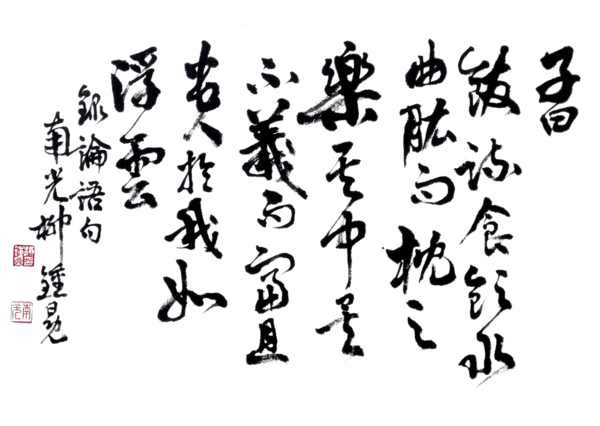 子曰
飯疏食飲水
曲肱而枕之
樂其中矣
不義而富且
貴於我如
浮雲
錄論語句
南光柳鍾晃